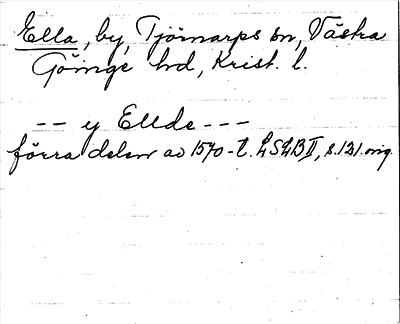 Ella, by, Tjörnarps sn, Västra
Göinge hd, Krist. l.
-- y Ellde ---
förra delen av 1570-t. LSLB II, s. 131. orig.